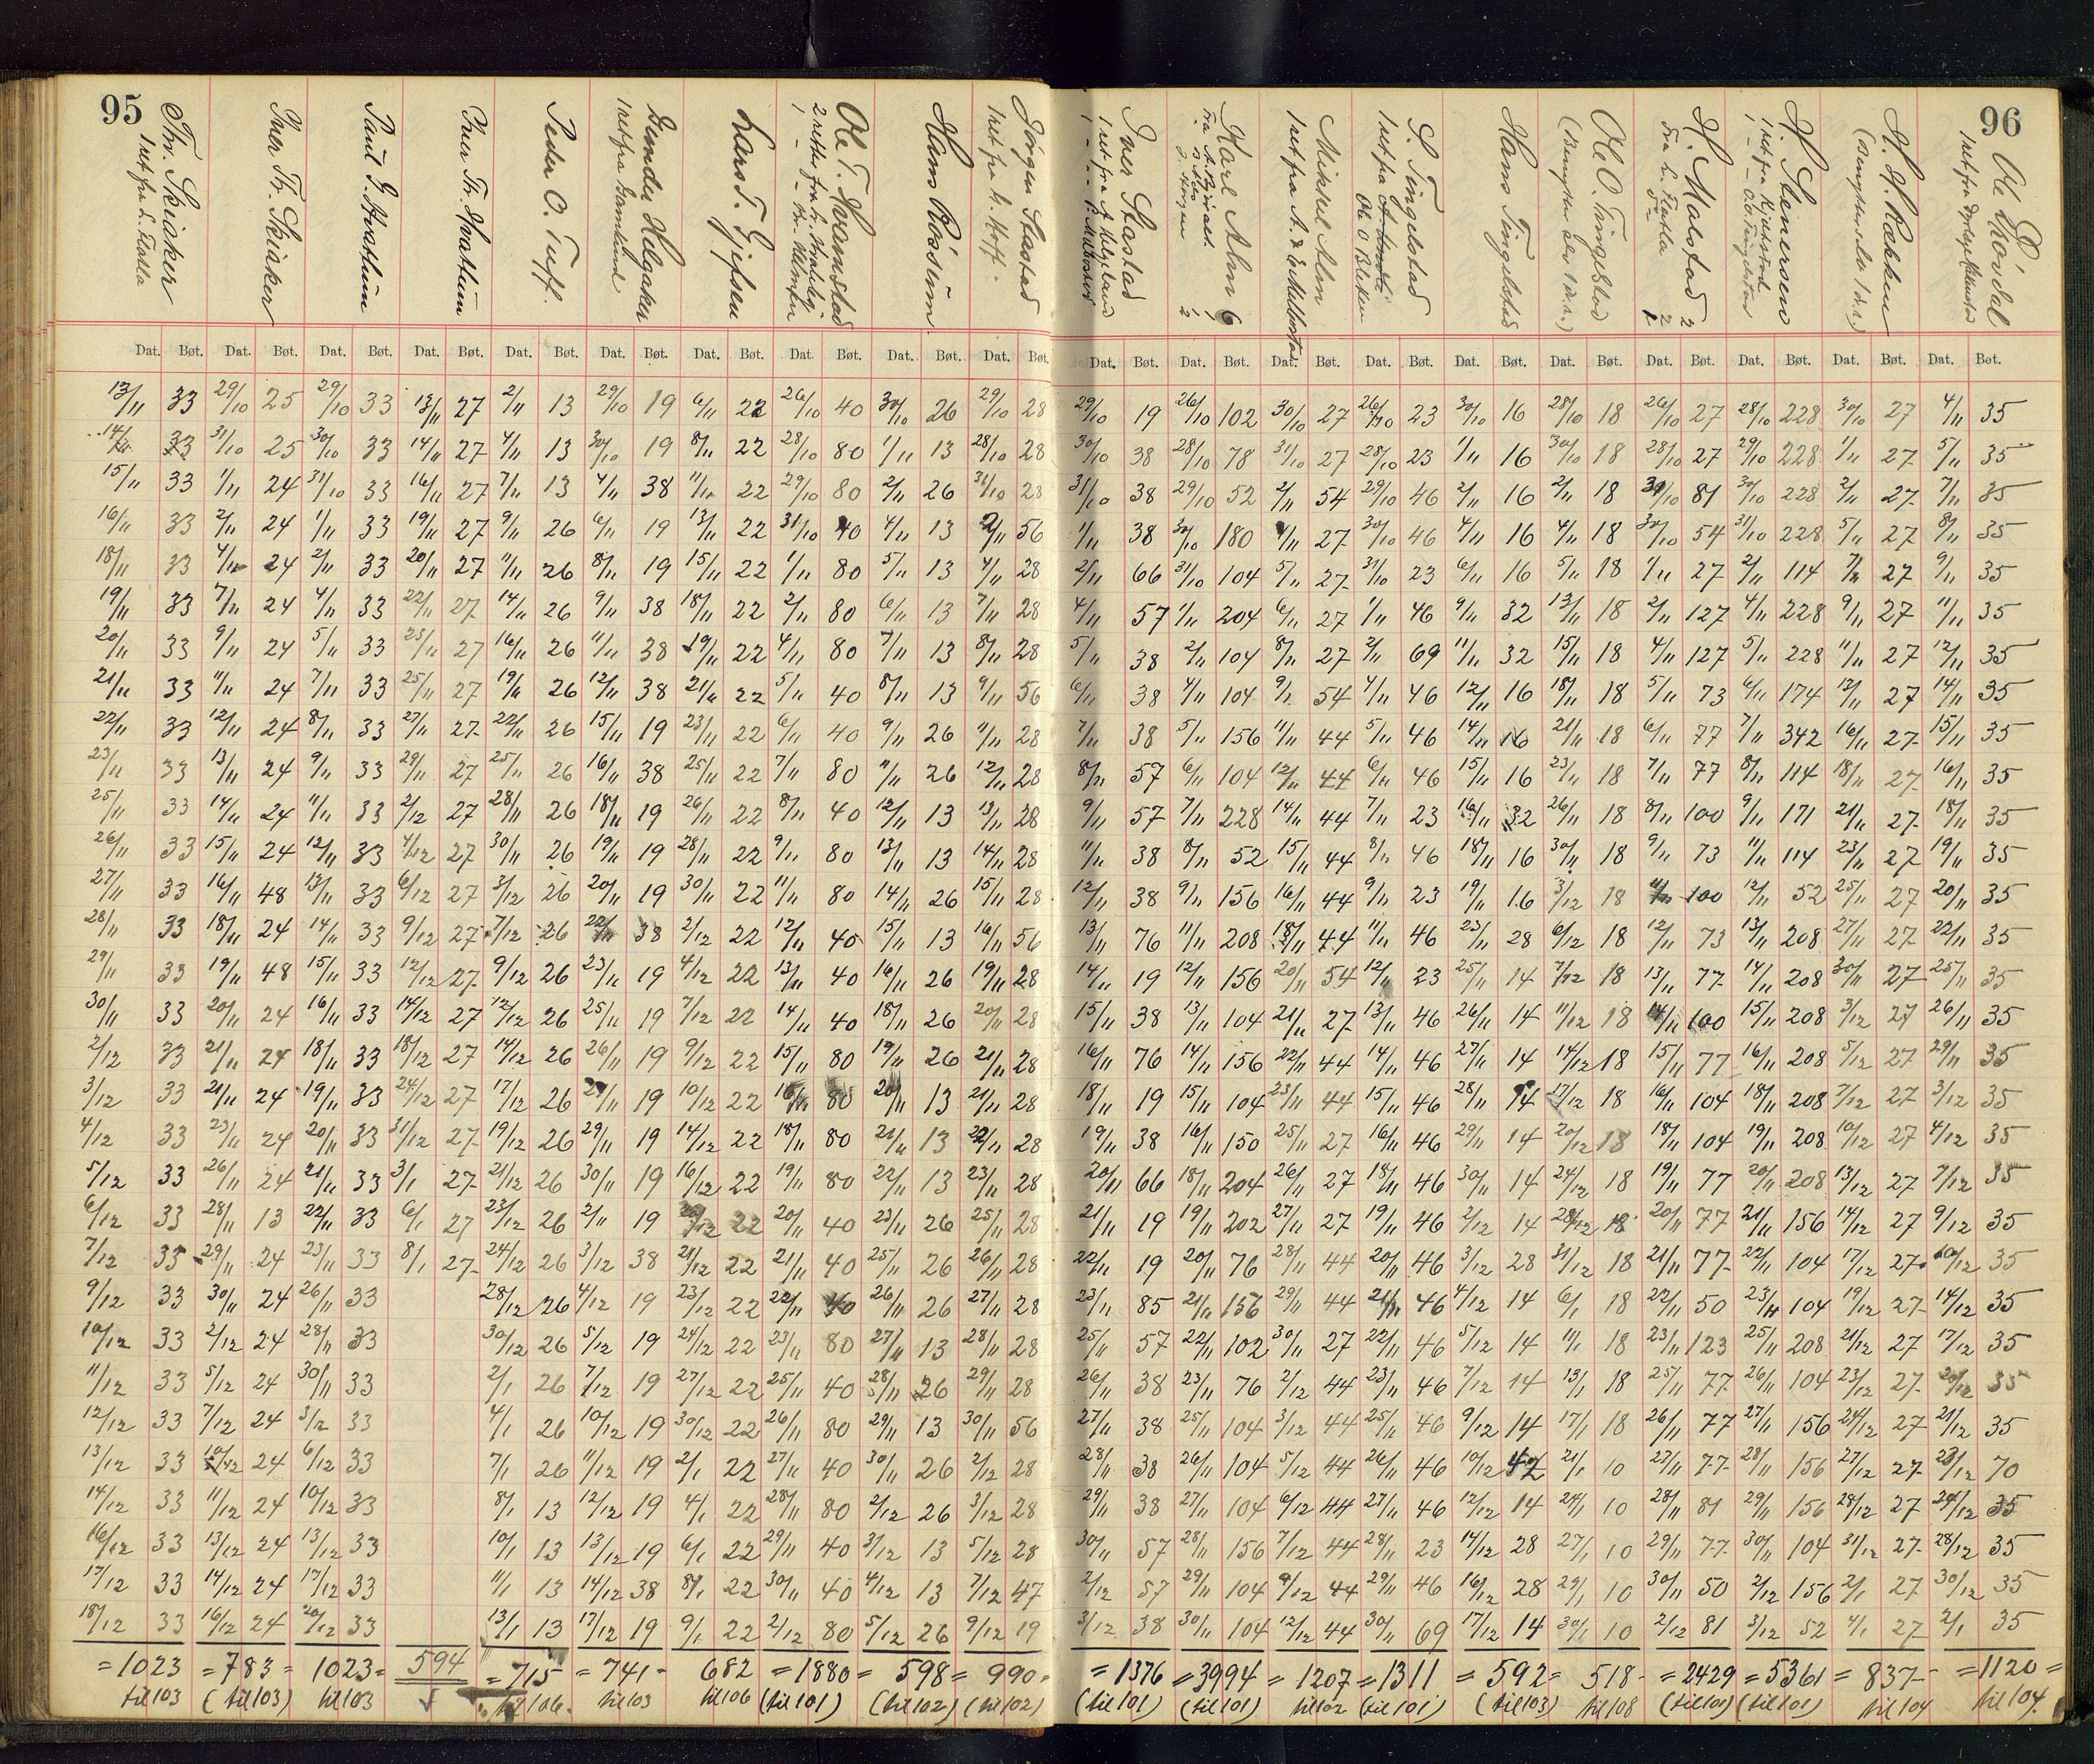 95
Iver Th. Skiaker
Paul G. Hvattum
Iver Th. Hvattum
Peder O. Tuff.
Lars T. Gjefsen
Ole T. Hvamstad
Hans Røsum
Jørgen Stastad
96
Iver Stastad
Karl Alm
Mikkel Alm
S. Tingelstad
Hans Tingelstad
Ole O. Tingelstad
H. Molstad
H. Stenersen
Dat. Bøt. Dat. Bøt. Dat. Bøt. Dat. Bøt. Dat. Bøt. Dat. Bøt. Dat. Bøt. Dat. Bøt. Dat. Bøt. Dat. Bøt. Dat. Bøt. Dat. Bøt. Dat. Bøt. Dat. Bøt. Dat. Bøt. Dat. Bøt. Dat. Bøt. Dat. Bøt. Dat. Bøt. Dat. Bøt.
13/11 33 29/10 25 29/10 33 13/11 27 2/11 13 29/10 19 6/11 22 26/10 40 30/10 26 29/10 28 29/10 19 26/10 102 30/10 27 26/10 23 30/10 16 28/10 18 26/10 27 28/10 228 30/10 27 4/11 35
14/11 33 31/10 25 30/10 33 14/11 27 4/11 13 30/10 19 8/11 22 28/10 80 1/11 13 28/10 28 30/10 38 28/10 78 31/10 27 28/10 23 1/11 16 30/10 18 28/10 27 29/10 228 1/11 27 5/11 35
15/11 33 1/11 24 31/10 33 16/11 27 7/11 13 4/11 38 11/11 22 29/10 80 2/11 26 31/10 28 31/10 38 29/10 52 2/11 54 29/10 46 2/11 16 2/11 18 81 30/10 228 2/11 27 7/11 35
16/11 33 2/11 24 1/11 33 19/11 27 9/11 26 6/11 19 13/11 22 31/10 40 4/11 13 2/11 56 1/11 38 30/10 180 4/11 27 30/10 46 4/11 16 4/11 18 30/10 54 31/10 228 5/11 27 8/11 35
18/11 33 4/11 24 2/11 33 20/11 27 11/11 26 8/11 19 15/11 22 1/11 80 5/11 13 4/11 28 2/11 66 31/10 104 5/11 27 31/10 23 6/11 16 5/11 18 1/11 27 2/11 114 7/11 27 9/11 35
19/11 33 7/11 24 4/11 33 22/11 27 14/11 26 9/11 38 18/11 22 2/11 80 6/11 13 7/11 28 4/11 57 1/11 204 6/11 27 1/11 46 9/11 32 13/11 18 2/11 127 4/11 228 9/11 27 11/11 35
20/11 33 9/11 24 5/11 33 23/11 27 16/11 26 11/11 38 19/11 22 4/11 80 7/11 13 8/11 28 5/11 38 2/11 104 8/11 27 2/11 69 11/11 32 15/11 18 4/11 127 5/11 228 11/11 27 12/11 35
21/11 33 11/11 24 7/11 33 25/11 27 19/11 26 12/11 38 21/11 22 5/11 40 8/11 13 9/11 56 6/11 38 4/11 104 9/11 54 4/11 46 12/11 16 18/11 18 5/11 73 6/11 174 12/11 27 14/11 35
22/11 33 12/11 24 8/11 33 27/11 27 22/11 26 15/11 19 23/11 22 6/11 40 9/11 26 11/11 28 7/11 38 5/11 156 11/11 44 5/11 46 14/11 16 21/11 18 6/11 77 7/11 342 16/11 27 15/11 35
23/11 33 13/11 24 9/11 33 29/11 27 25/11 26 16/11 38 25/11 22 7/11 80 11/11 26 12/11 28 8/11 57 6/11 104 12/11 44 6/11 46 15/11 16 23/11 18 7/11 77 8/11 114 18/11 27 16/11 35
25/11 33 14/11 24 11/11 33 2/12 27 28/11 26 18/11 19 26/11 22 8/11 40 12/11 13 13/11 28 9/11 57 7/11 228 14/11 44 7/11 23 16/11 32 26/11 18 8/11 100 9/11 171 21/11 27 18/11 35
26/11 33 15/11 24 12/11 33 4/12 27 30/11 26 19/11 19 28/11 22 9/11 80 13/11 13 14/11 28 11/11 38 8/11 52 15/11 44 8/11 46 18/11 16 30/11 18 9/11 73 11/11 114 23/11 27 19/11 35
27/11 33 16/11 48 13/11 33 6/12 27 3/12 26 20/11 19 30/11 22 11/11 80 14/11 26 15/11 28 12/11 38 9/11 156 16/11 44 9/11 23 19/11 16 3/12 18 11/11 100 12/11 52 25/11 27 20/11 35
28/11 33 18/11 24 14/11 33 9/12 27 7/12 26 22/11 38 2/12 22 12/11 40 15/11 13 16/11 56 13/11 76 11/11 208 18/11 44 11/11 46 23/11 28 6/12 18 12/11 73 13/11 208 27/11 27 22/11 35
29/11 33 19/11 48 15/11 33 12/12 27 9/12 26 23/11 19 4/12 22 13/11 40 16/11 26 19/11 28 14/11 19 12/11 156 20/11 54 12/11 23 25/11 14 7/12 18 13/11 77 14/11 208 30/11 27 25/11 35
30/11 33 20/11 24 16/11 33 14/12 27 12/12 26 25/11 19 7/12 22 14/11 40 18/11 26 20/11 28 15/11 38 13/11 104 21/11 27 13/11 46 26/11 14 11/12 18 14/11 100 15/11 208 3/12 27 26/11 35
2/12 33 21/11 24 18/11 33 18/12 27 14/12 26 26/11 19 9/12 22 15/11 80 19/11 26 21/11 28 16/11 76 14/11 156 22/11 44 14/11 46 27/11 14 14/12 18 15/11 77 16/11 208 5/12 27 29/11 35
3/12 33 21/11 24 19/11 33 24/12 27 17/12 26 27/11 19 10/12 22 16/11 80 20/11 13 21/11 28 18/11 19 15/11 104 23/11 44 15/11 46 28/11 14 17/12 18 16/11 104 18/11 208 7/12 27 3/12 35
4/12 33 23/11 24 20/11 33 31/12 27 19/12 26 29/11 19 14/12 22 18/11 80 21/11 13 22/11 28 19/11 38 16/11 150 25/11 27 16/11 46 29/11 14 20/12 18 18/11 104 19/11 208 10/12 27 4/12 35
5/12 33 26/11 24 21/11 33 3/1 27 21/12 26 30/11 19 16/12 22 19/11 80 22/11 13 23/11 28 20/11 66 18/11 204 26/11 27 18/11 46 30/11 14 24/12 18 19/11 77 20/11 208 13/12 27 7/12 35
6/12 33 28/11 13 22/11 33 6/1 27 23/12 26 2/11 19 20/12 22 20/11 40 23/11 26 25/11 28 21/11 19 19/11 202 27/11 27 19/11 46 2/12 14 28/12 18 20/11 77 21/11 156 14/12 27 9/12 35
7/12 33 29/11 24 23/11 33 8/1 27 24/12 26 3/12 38 21/12 22 21/11 40 25/11 26 26/11 28 22/11 19 20/11 76 28/11 44 20/11 46 3/12 28 31/12 18 21/11 77 22/11 104 17/12 27 10/12 35
9/12 33 30/11 24 26/11 33 28/12 26 4/12 19 23/12 22 22/11 40 26/11 26 27/11 28 23/11 85 21/11 156 29/11 44 21/11 46 4/12 14 6/1 18 22/11 50 23/11 104 19/12 27 14/12 35
10/12 33 2/12 24 28/11 33 30/12 26 5/12 19 24/12 22 23/11 80 27/11 13 28/11 28 25/11 57 22/11 102 30/11 27 22/11 46 5/12 14 11/1 18 23/11 123 25/11 208 21/12 27 17/12 35
11/12 33 5/12 24 30/11 33 2/1 26 7/12 19 27/12 22 25/11 40 28/11 26 29/11 28 26/11 38 23/11 76 2/12 44 23/11 46 7/12 14 13/1 18 25/11 77 26/11 104 23/12 27 20/12 35
12/12 33 7/12 24 3/12 33 4/1 26 10/12 19 30/12 22 26/11 80 29/11 13 30/11 56 27/11 38 25/11 104 3/12 44 25/11 46 9/12 14 17/1 18 26/11 77 27/11 156 24/12 27 21/12 35
13/12 33 10/12 24 6/12 33 7/1 26 11/12 19 2/1 22 27/11 40 30/11 26 2/12 28 28/11 38 26/11 104 5/12 44 26/11 46 10/12 42 21/1 10 27/11 77 28/11 156 27/12 27 23/12 70
14/12 33 11/12 24 10/12 33 8/1 13 12/12 19 4/1 22 28/11 80 2/12 26 3/12 28 29/11 38 27/11 104 6/12 44 27/11 46 12/12 14 24/1 10 28/11 81 29/11 156 28/12 27 24/12 35
16/12 33 13/12 24 13/12 33 10/1 13 13/12 19 6/1 22 29/11 40 3/12 13 5/12 28 30/11 57 28/11 156 7/12 44 28/11 23 14/12 28 27/1 10 29/11 77 30/11 104 31/12 27 28/12 35
17/12 33 14/12 24 17/12 33 11/1 13 14/12 38 8/1 22 30/11 40 4/12 13 7/12 47 2/12 57 29/11 104 9/12 44 29/11 46 16/12 28 29/1 10 30/11 50 2/12 156 2/1 27 30/12 35
18/12 33 16/12 24 20/12 33 13/1 13 17/12 19 9/1 22 2/12 80 5/12 26 9/12 19 3/12 38 30/11 104 12/12 44 30/11 69 17/12 14 30/1 10 2/12 81 3/12 52 4/1 27 2/1 35
=1023 =783= 1023= 594 =715 =741- 682 =1880= 598= 990 =1376 =3994 =1207 =1311 =592= 518- =2429 =5361 =837- =1120=
til 103 (til 103) til 103 til 106. til 103 til 106 (til 101) (til 102) (til 102) (til 101) (til 101) til 102 (til 101) (til 103) til 108 (til 101) (til 101) til 104 til 104.